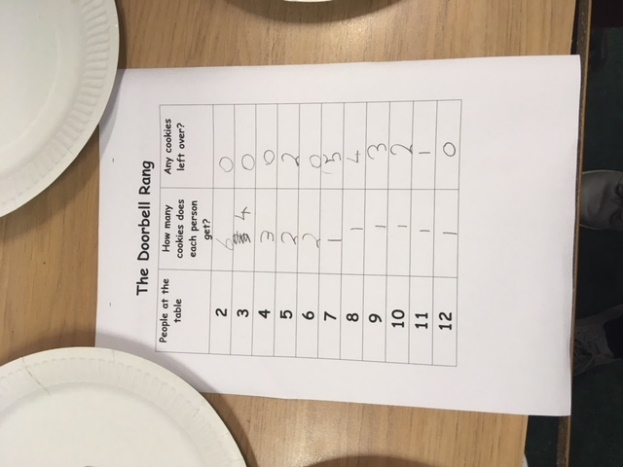 The Doorbell Rang
People at the table How many cookies does each person get? Any cookies left over?
2 6 0
3 4 0
4 3 0
5 2 2
6 2 0
7 1 5
8 1 4
9 1 3
10 1 2
11 1 1
12 1 0